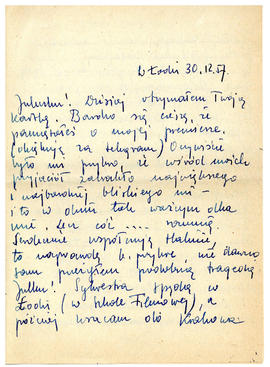 w Łodzi 30.12.57.
Julusiu! Dzisiaj otrzymałem Twoją
kartkę. Bardzo się cieszę, że
pamiętałeś o mojej premierze.
(dziękuję za telegram) Oczywiście
było mi przykro, że wśród moich
przyjaciół zabrakło największego
i najbardziej bliskiego mi –
i to w dniu tak ważnym dla
mnie. Ten cóż ....
Serdecznie współczuję Halinie,
to naprawdę b. przykre, niedawno
sam przeżyłem podobną tragedię
Julku! Sylwestra spędzę w
Łodzi (w Szkole Filmowej), a
później wracam do Krakowa.